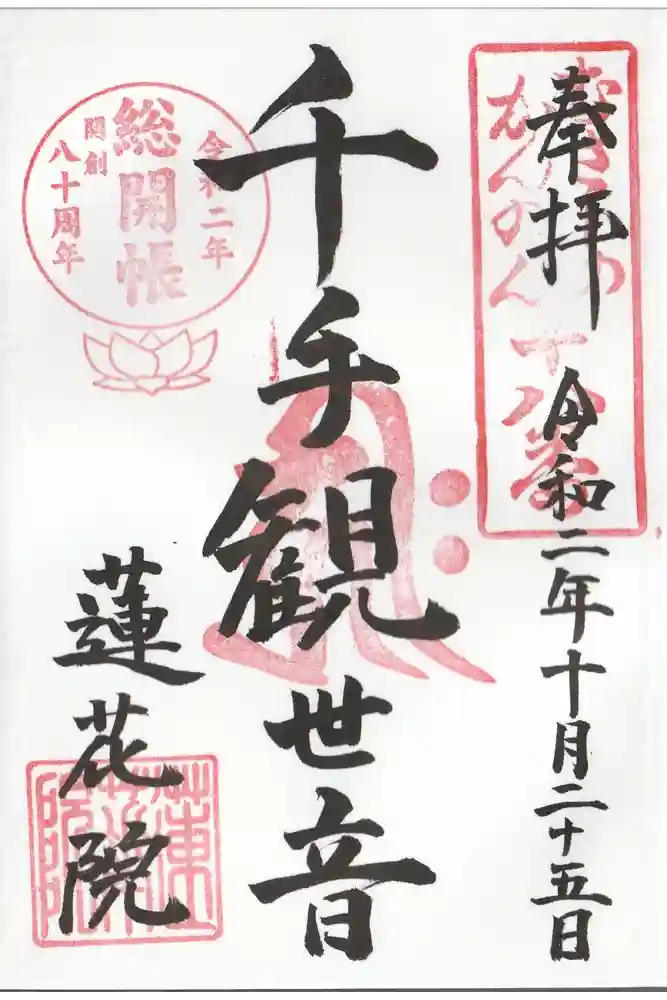 奉拝
令和二年十月二十五日
千手観世音
令和二年
総開帳
開創
八十周年
蓮花院
蓮華院